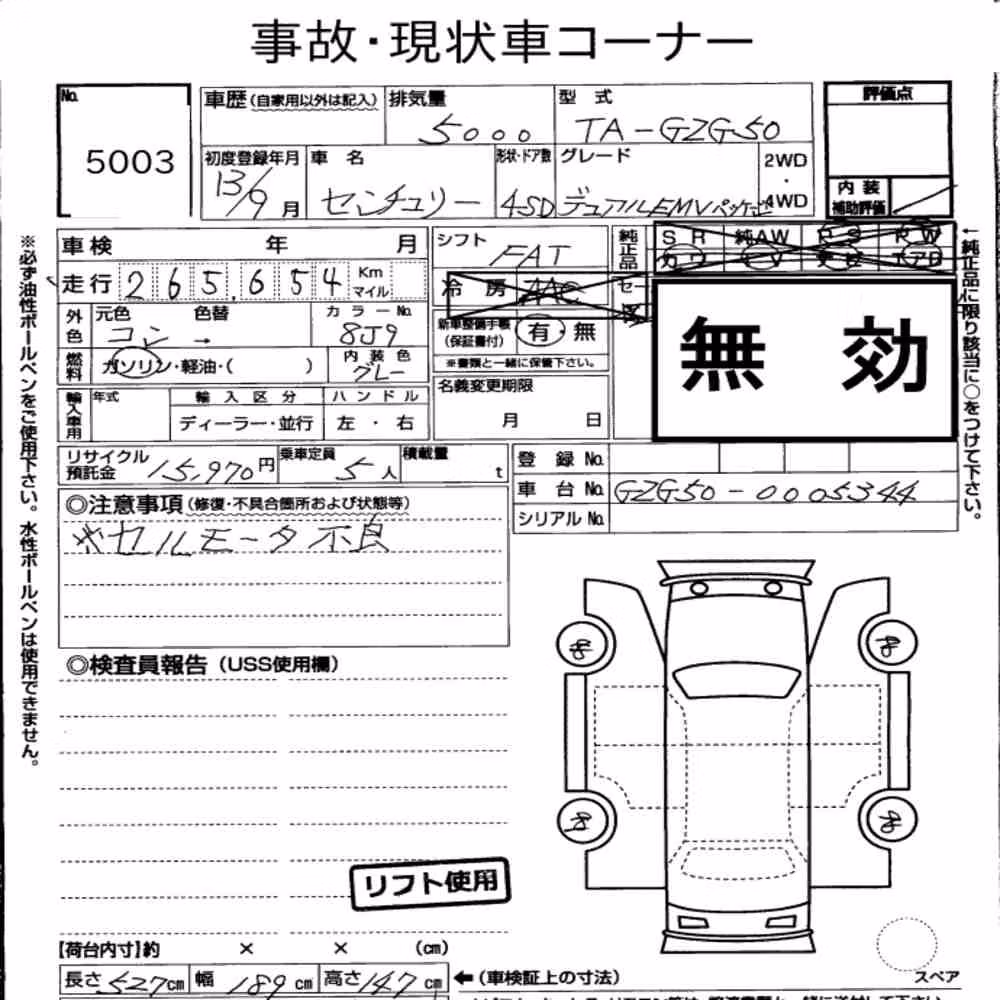 事故・現状車コーナー
No. 5003
車歴(自家用以外は記入)
排気量 5000
型式 TA-GZG50
評価点
初度登録年月 13/9月
車名 センチュリー
形状・ドア数 4SD
グレード デュアルEMVパッケージ
2WD・4WD
内装補助評価
車検 年 月
シフト FAT
純正品
SR 純AW PS PW
カワ TV ナビ エアB
走行 265,654 Km マイル
冷房 AAC
セー
無効
外色 元色 コン → 色替
カラーNo. 8J9
新車整備手帳(保証書付) 有・無
※書類と一緒に保管下さい。
燃料 ガソリン・軽油・( )
内装色 グレー
輸入車用 年式
輸入区分 ディーラー・並行
ハンドル 左・右
名義変更期限 月 日
リサイクル預託金 15,970円
乗車定員 5人
積載量 t
登録No.
車台No. GZG50-0005344
シリアルNo.
◎注意事項(修復・不具合箇所および状態等)
※セルモータ不良
◎検査員報告(USS使用欄)
リフト使用
【荷台内寸】約 × × (cm)
長さ527cm 幅189cm 高さ147cm
←(車検証上の寸法)
スペア
※必ず油性ボールペンをご使用下さい。水性ボールペンは使用できません。
←純正品に限り該当に○をつけて下さい。